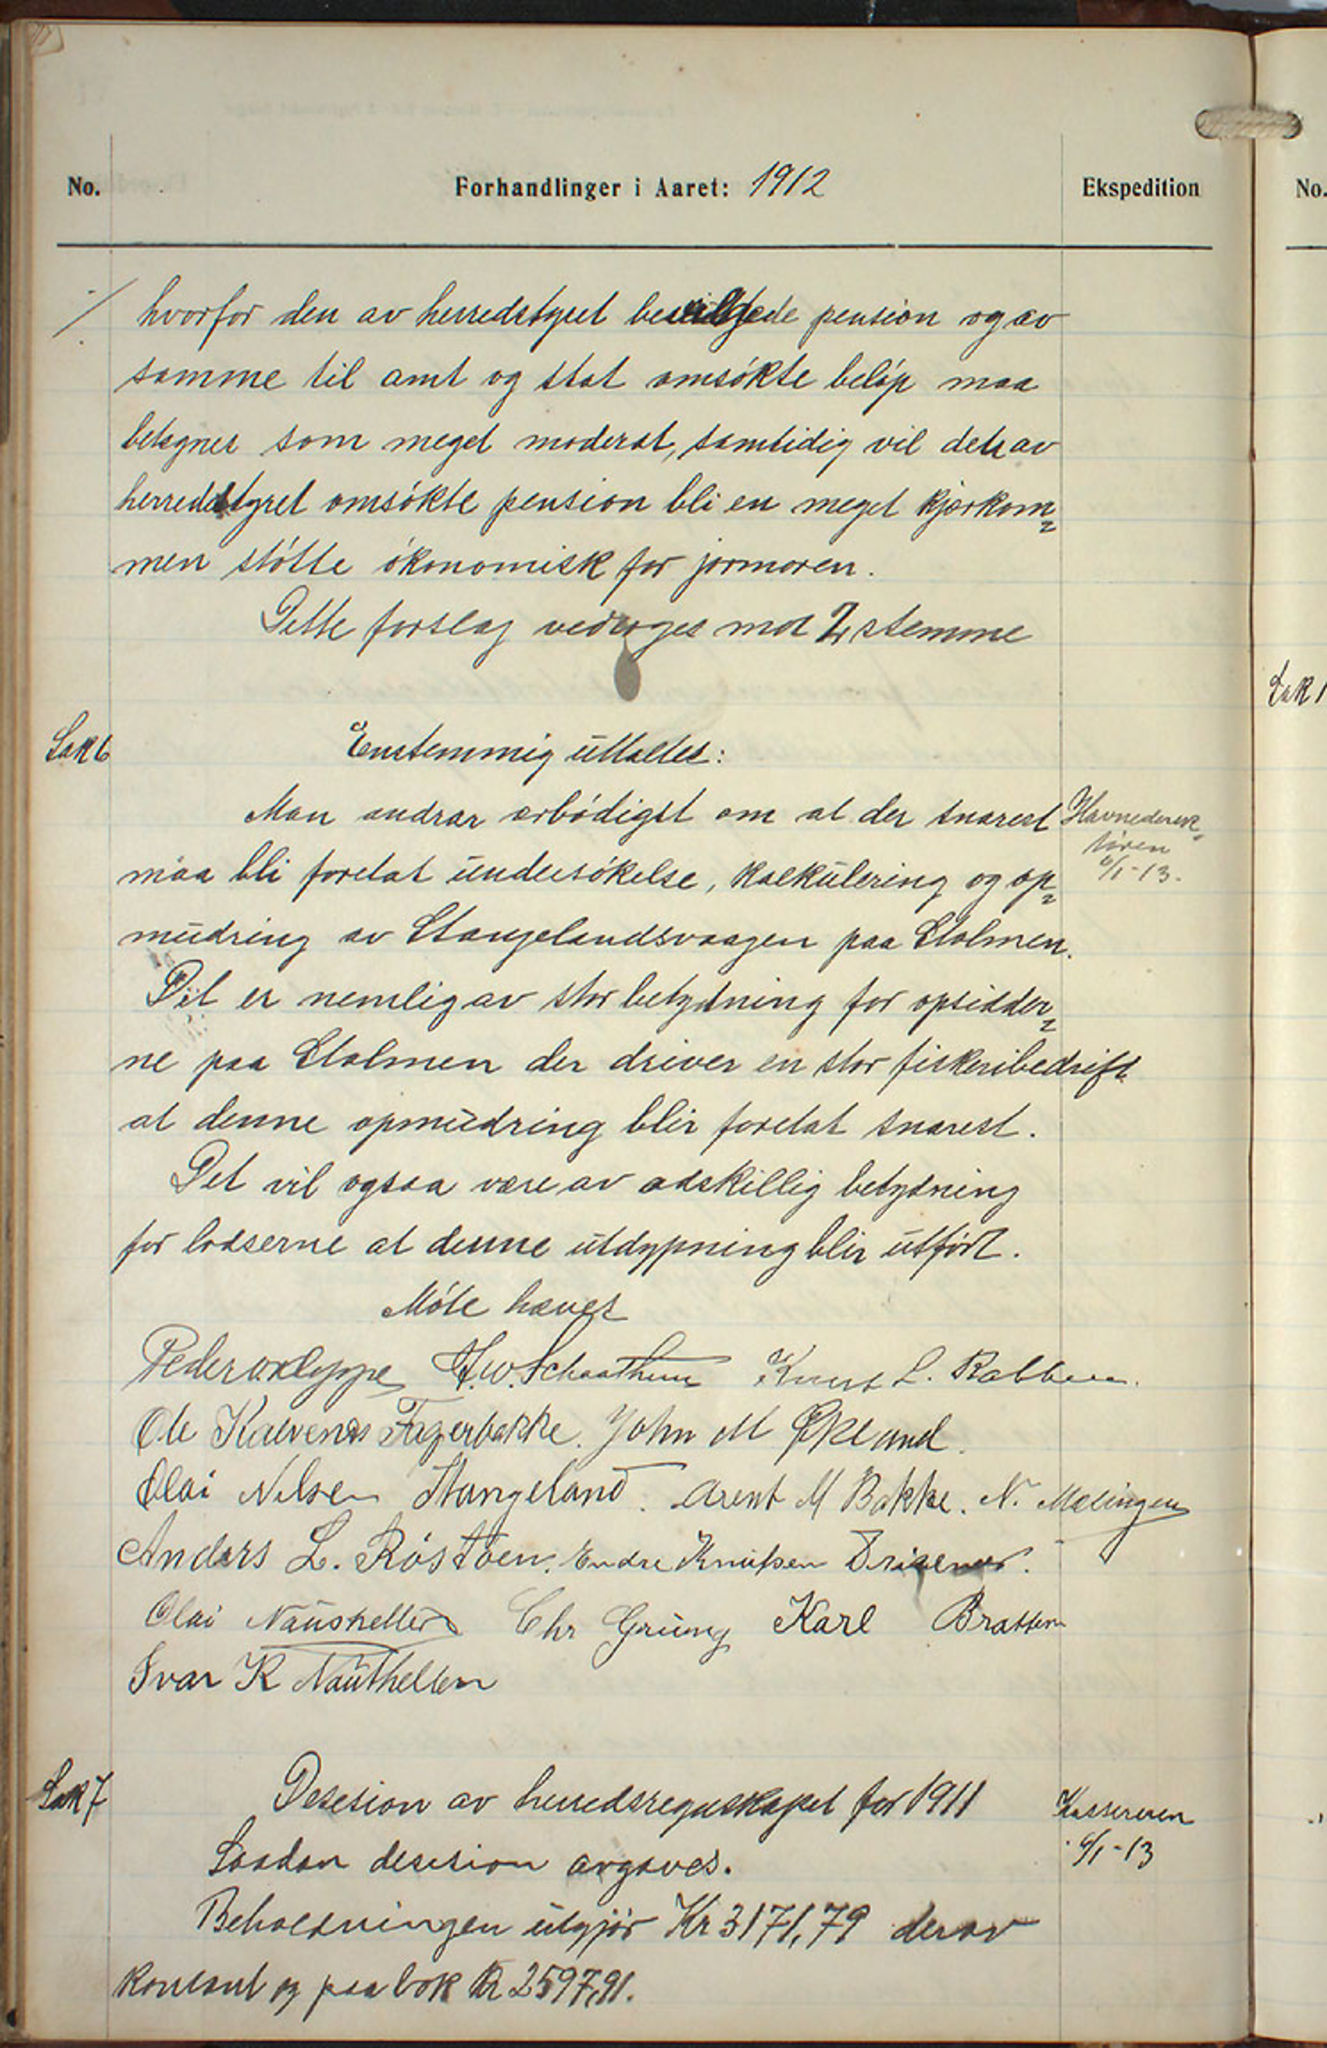 No. Forhandlinger i Aaret: 1912 Ekspedition No.
hvorfor den av herredstyret bevilgede pension og av
samme til amt og stat omsökte belöp maa
betegnes som meget moderat, samtidig vil det av
herredstyret omsökte pension bli en meget kjærkom=
men stötte ökonomisk for jormoren.
Dette forslag vedtoges mot 2 stemme
Sak 6 Enstemmig uttaltes:
Man andrar ærbödigst om at der snarest Havnedirek=
tören
maa bli foretat undersökelse, kalkulering og op= 6/1-13.
mudring av Stangelandsvaagen paa Stolmen.
Det er nemlig av stor betydning for opsidder=
ne paa Stolmen der driver en stor fiskeribedrift
at denne opmudring blir foretat snarest.
Det vil ogsaa være av adskillig betydning
for lodserne at denne utdypning blir utfört.
Möte hævet
Peder Møkleppe H.W. Schaathun Knut L. Rabben.
Ole Kalvenes Fagerbakke. John M Økland.
Olai Nelsen Stangeland. Arent M Bakke. N. Mælingen
Anders L. Röstöen. Endre Knutsen Drivenes.
Olai Naustheller Chr Grung Karl Bratten
Ivar K Nauthellen
Sak 7 Desision av herredsregnskapet for 1911 Kassereren
Saadan desision avgaves. 6/1-13
Beholdningen utgjör Kr 3171,79 derav
kontant og paa bok Kr 2597,91.
Sak 1